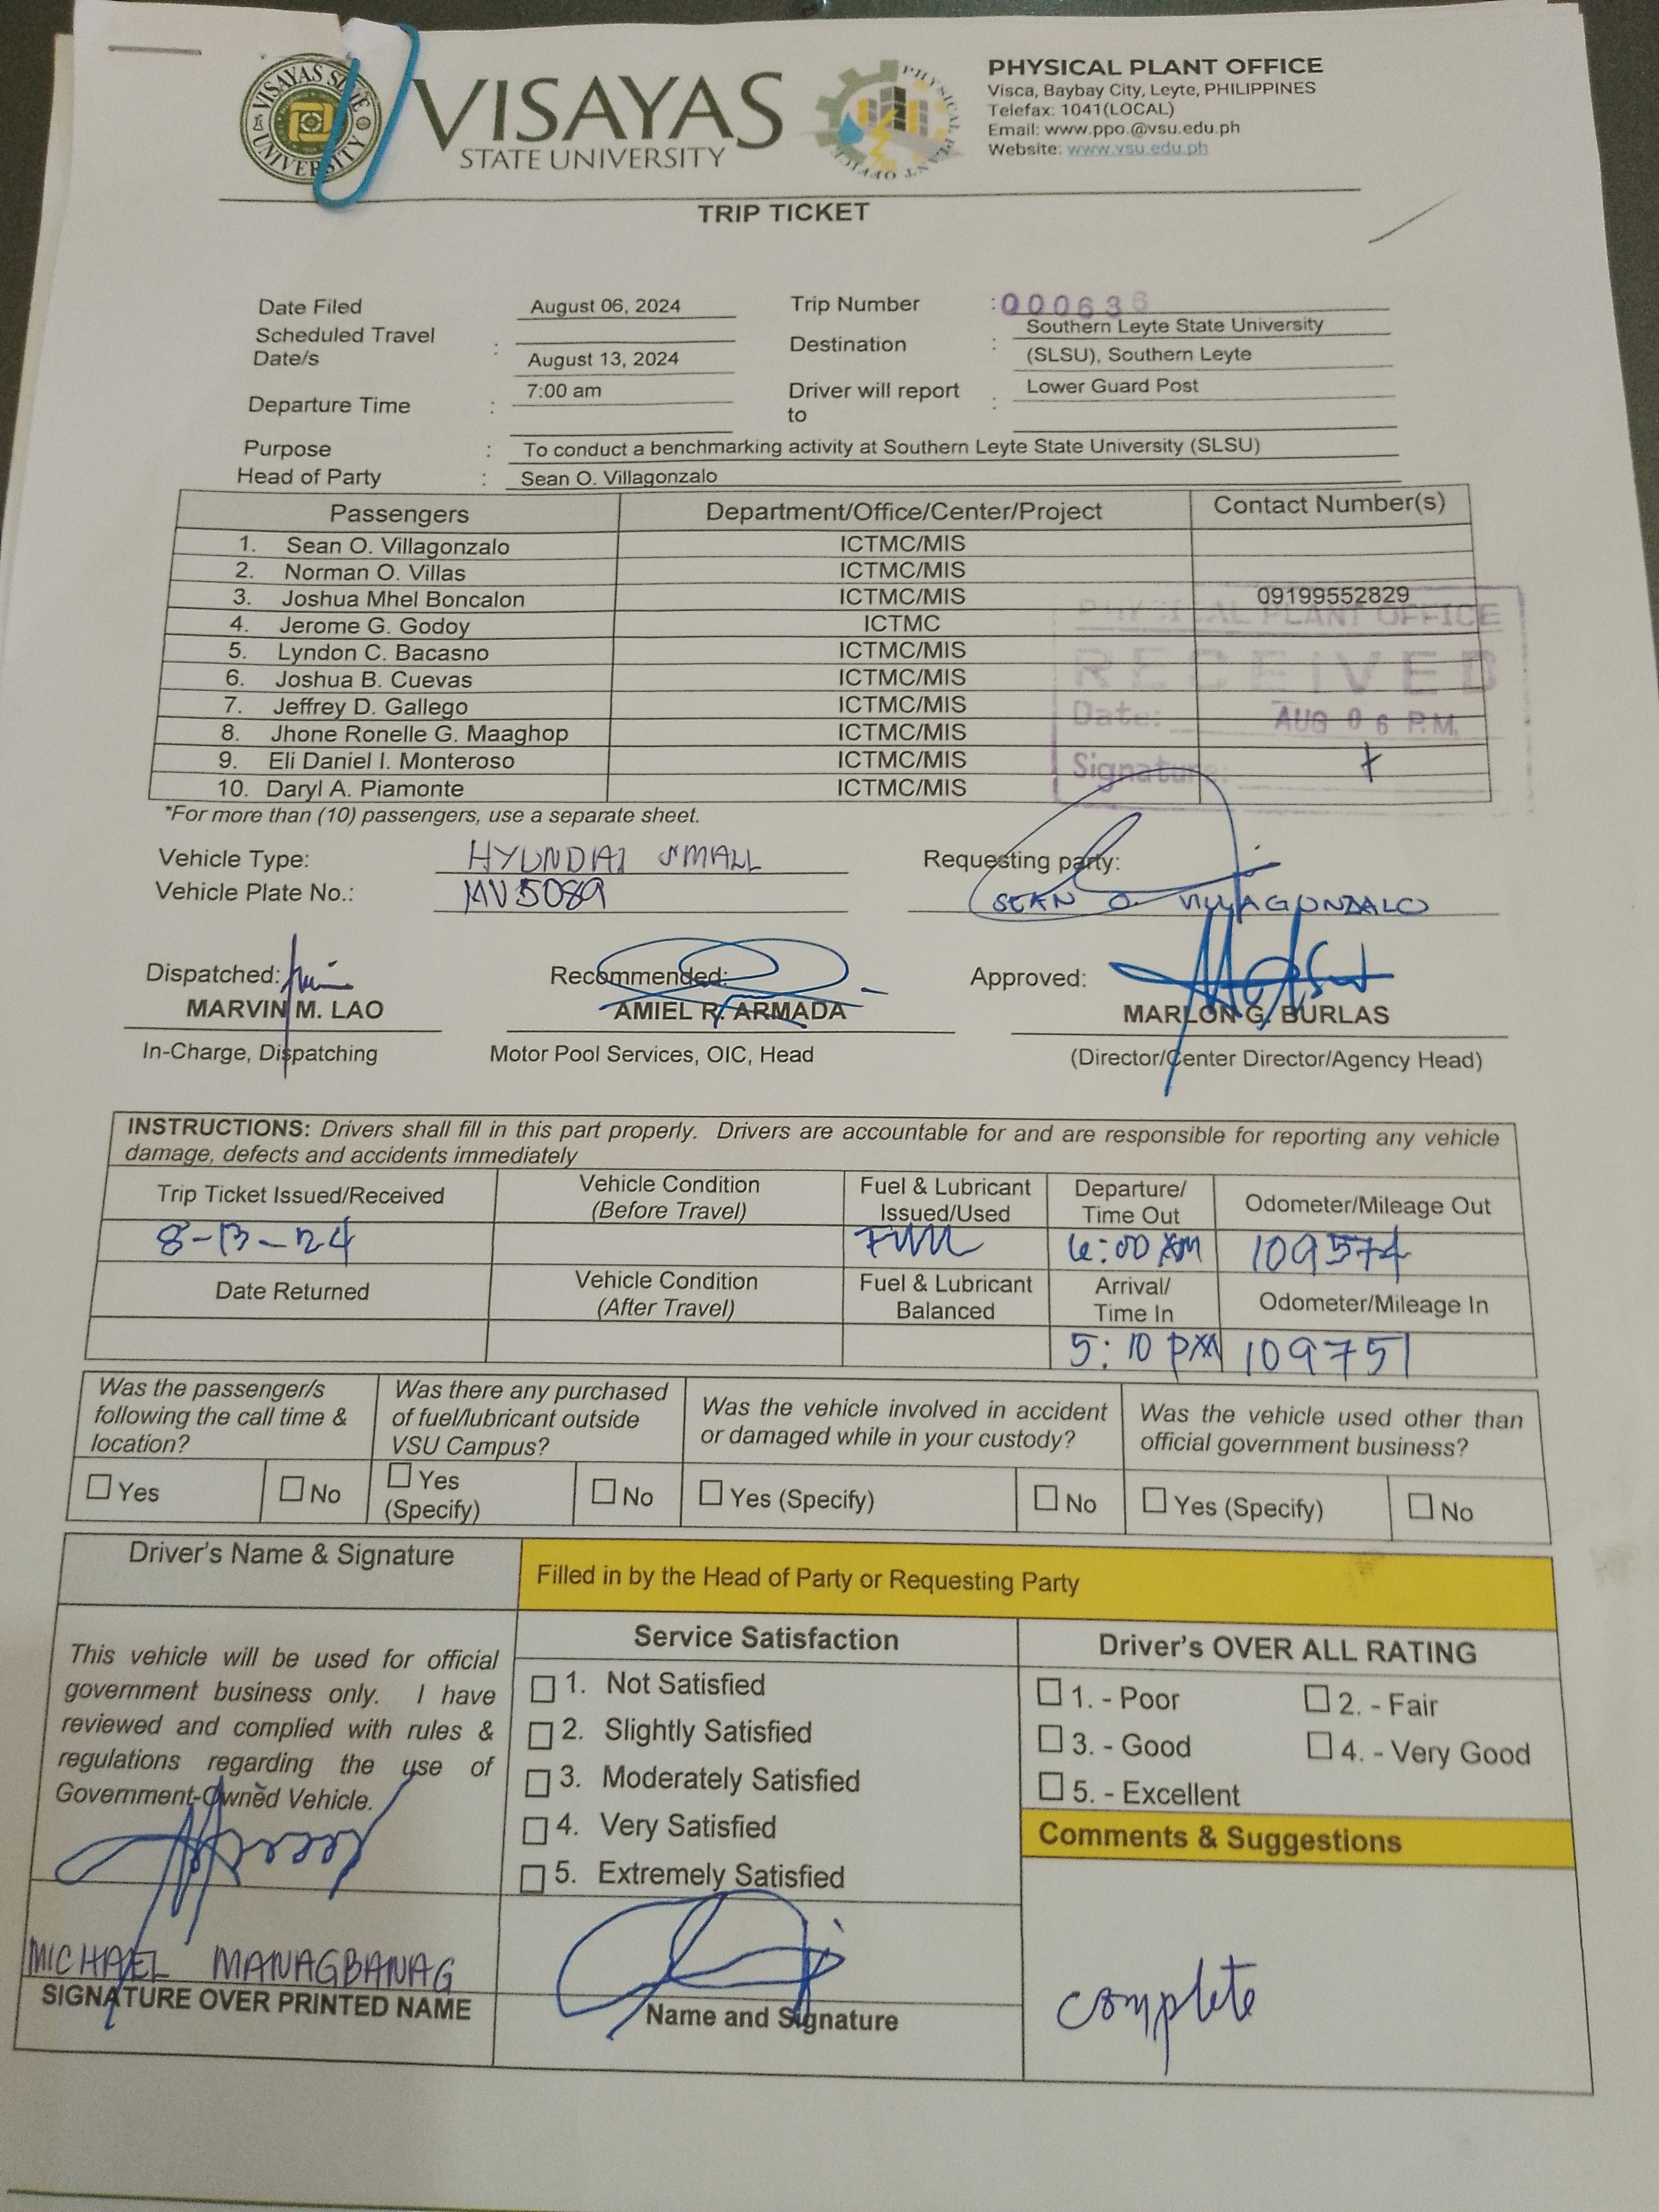 VISAYAS STATE UNIVERSITY
PHYSICAL PLANT OFFICE
VISAYAS
STATE UNIVERSITY
PHYSICAL PLANT OFFICE
Visca, Baybay City, Leyte, PHILIPPINES
Telefax: 1041(LOCAL)
Email: www.ppo.@vsu.edu.ph
Website: www.vsu.edu.ph
TRIP TICKET
Date Filed August 06, 2024 Trip Number : 000636
Scheduled Travel Date/s : August 13, 2024 Destination : Southern Leyte State University (SLSU), Southern Leyte
Departure Time : 7:00 am Driver will report to : Lower Guard Post
Purpose : To conduct a benchmarking activity at Southern Leyte State University (SLSU)
Head of Party : Sean O. Villagonzalo
Passengers Department/Office/Center/Project Contact Number(s)
1. Sean O. Villagonzalo ICTMC/MIS
2. Norman O. Villas ICTMC/MIS
3. Joshua Mhel Boncalon ICTMC/MIS 09199552829
4. Jerome G. Godoy ICTMC
5. Lyndon C. Bacasno ICTMC/MIS
6. Joshua B. Cuevas ICTMC/MIS
7. Jeffrey D. Gallego ICTMC/MIS
8. Jhone Ronelle G. Maaghop ICTMC/MIS
9. Eli Daniel I. Monteroso ICTMC/MIS
10. Daryl A. Piamonte ICTMC/MIS
PHYSICAL PLANT OFFICE
RECEIVED
Date: AUG 06 P.M.
Signature:
*For more than (10) passengers, use a separate sheet.
Vehicle Type: HYUNDAI SMALL Requesting party:
Vehicle Plate No.: MV5089 SEAN O. VILLAGONZALO
Dispatched: Recommended: Approved:
MARVIN M. LAO AMIEL R. ARMADA MARLON G. BURLAS
In-Charge, Dispatching Motor Pool Services, OIC, Head (Director/Center Director/Agency Head)
INSTRUCTIONS: Drivers shall fill in this part properly. Drivers are accountable for and are responsible for reporting any vehicle
damage, defects and accidents immediately
Trip Ticket Issued/Received Vehicle Condition (Before Travel) Fuel & Lubricant Issued/Used Departure/ Time Out Odometer/Mileage Out
8-13-24 Full 6:00 AM 109574
Date Returned Vehicle Condition (After Travel) Fuel & Lubricant Balanced Arrival/ Time In Odometer/Mileage In
5:10 PM 109751
Was the passenger/s following the call time & location?
Yes No
Was there any purchased of fuel/lubricant outside VSU Campus?
Yes (Specify) No
Was the vehicle involved in accident or damaged while in your custody?
Yes (Specify) No
Was the vehicle used other than official government business?
Yes (Specify) No
Driver's Name & Signature
This vehicle will be used for official
government business only. I have
reviewed and complied with rules &
regulations regarding the use of
Government-Owned Vehicle.
MICHAEL MANAGBANAG
SIGNATURE OVER PRINTED NAME
Filled in by the Head of Party or Requesting Party
Service Satisfaction
1. Not Satisfied
2. Slightly Satisfied
3. Moderately Satisfied
4. Very Satisfied
5. Extremely Satisfied
Name and Signature
Driver's OVER ALL RATING
1. - Poor 2. - Fair
3. - Good 4. - Very Good
5. - Excellent
Comments & Suggestions
complete